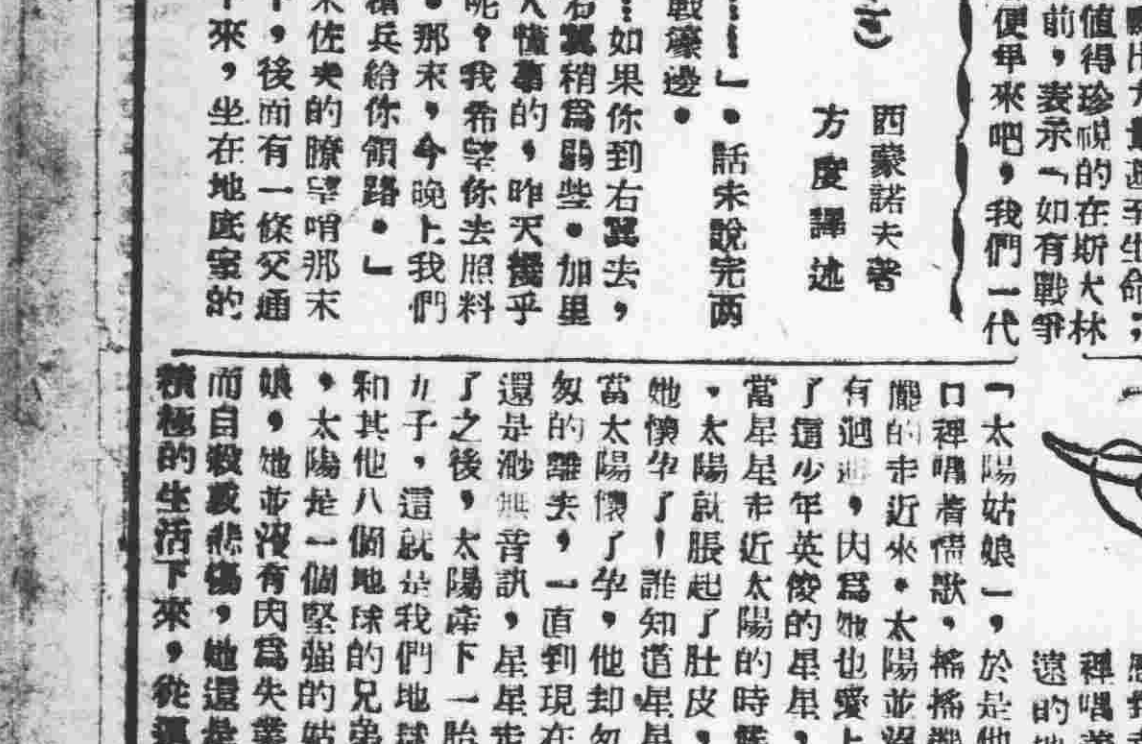 值得珍視的在斯大林
前，表示「如有戰爭
便早來吧，我們一代
西蒙諾夫著
方度譯述
」。話未說完两
戰壕邊。
如果你到右翼去，
右翼稍爲弱些。加里
人懂事的，昨天幾乎
呢？我希望你去照料
。那末，今晚上我們
槍兵給你領路。」
末佐夫的瞭望哨那末
，後面有一條交通
下來，坐在地底室的
裡唱着
遠的
「太陽姑娘」，於是他
口裡唱着情歌，搖搖擺
擺的走近來。太陽並沒
有迴避，因爲她也愛上
了這少年英俊的星星，
當星星走近太陽的時候
，太陽就脹起了肚皮，
她懷孕了！誰知道星星
當太陽懷了孕，他却匆
匆的離去，一直到現在
還是渺無音訊，星星走
了之後，太陽產下一胎
九子，這就是我們地球
和其他八個地球的兄弟
，太陽是一個堅强的姑
娘，她並沒有因爲失業
而自殺或悲傷，她還是
積極的生活下來，從這